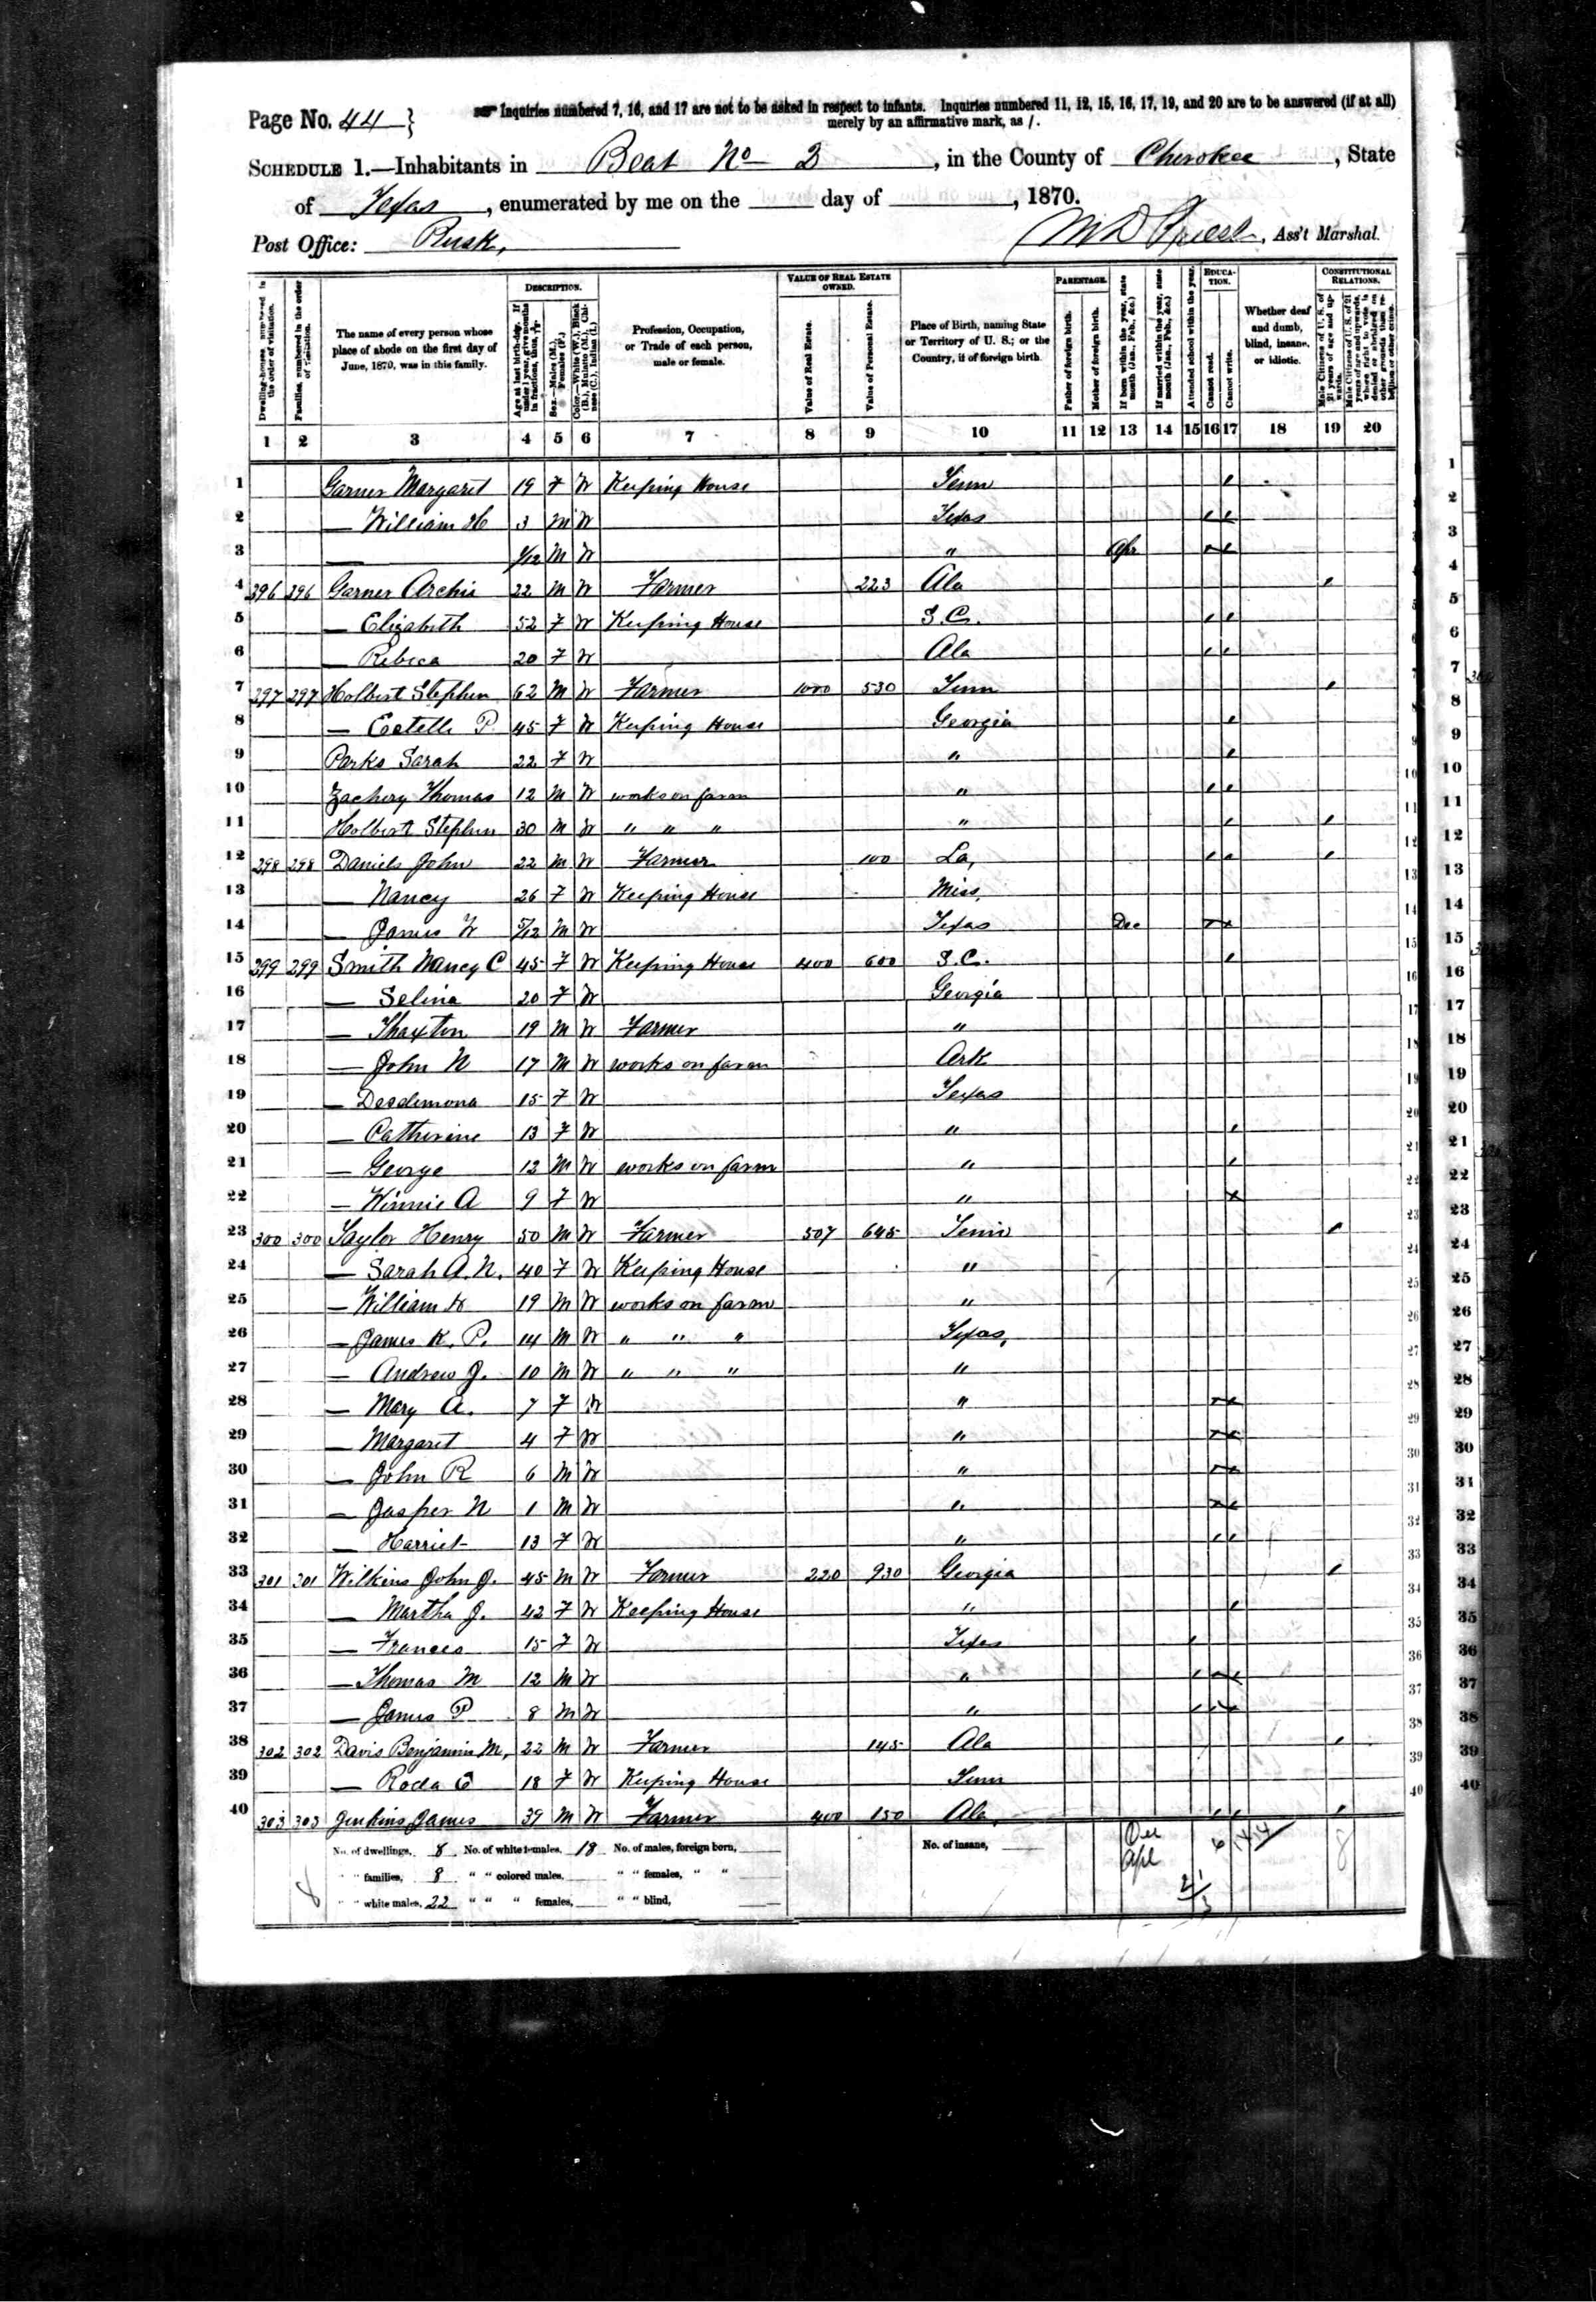 Page No. 44 } Inquiries numbered 7, 16, and 17 are not to be asked in respect to infants. Inquiries numbered 11, 12, 15, 16, 17, 19, and 20 are to be answered (if at all)
merely by an affirmative mark, as /.
SCHEDULE 1.—Inhabitants in Beat No 2, in the County of Cherokee, State
of Texas, enumerated by me on the day of , 1870.
Post Office: Rusk, M D Priest, Ass't Marshal.
Dwelling-houses, numbered in the order of visitation.
Families, numbered in the order of visitation.
The name of every person whose place of abode on the first day of June, 1870, was in this family.
DESCRIPTION.
Age at last birth-day. If under 1 year, give months in fractions, thus, 3/12
Sex.—Males (M.), Females (F.)
Color.—White (W.), Black (B.), Mulatto (M.), Chinese (C.), Indian (I.)
Profession, Occupation, or Trade of each person, male or female.
VALUE OF REAL ESTATE OWNED.
Value of Real Estate.
Value of Personal Estate.
Place of Birth, naming State or Territory of U. S.; or the Country, if of foreign birth.
PARENTAGE.
Father of foreign birth.
Mother of foreign birth.
If born within the year, state month (Jan., Feb., &c.)
If married within the year, state month (Jan., Feb., &c.)
Attended school within the year.
EDUCATION.
Cannot read.
Cannot write.
Whether deaf and dumb, blind, insane, or idiotic.
CONSTITUTIONAL RELATIONS.
Male Citizens of U. S. of 21 years of age and upwards.
Male Citizens of U. S. of 21 years of age and upwards, where right to vote is denied or abridged on other grounds than rebellion or other crime.
1 2 3 4 5 6 7 8 9 10 11 12 13 14 15 16 17 18 19 20
1 Garner Margaret 19 F W Keeping House Tenn /
2 — William H 3 M W Texas / /
3 — 1/12 M W " Apr
4 396 396 Garner Archie 22 M W Farmer 223 Ala /
5 — Elizabeth 52 F W Keeping House S.C. / /
6 — Rebeca 20 F W Ala / /
7 297 297 Holbert Stephen 62 M W Farmer 1000 530 Tenn /
8 — Estelle P. 45 F W Keeping House Georgia /
9 Parks Sarah 22 F W " /
10 Zachery Thomas 12 M W works on farm " / /
11 Holbert Stephen 30 M W " " " " / /
12 298 298 Daniels John 22 M W Farmer 100 La, / / /
13 — Nancy 26 F W Keeping House Miss,
14 — James W 5/12 M W Texas Dec
15 299 299 Smith Nancy C 45 F W Keeping House 400 600 S.C. /
16 — Selina 20 F W Georgia
17 — Thaxton 19 M W Farmer "
18 — John N 17 M W works on farm Ark
19 — Desdemona 15 F W Texas
20 — Catherine 13 F W " /
21 — George 12 M W works on farm " /
22 — Winnie A 9 F W "
23 300 300 Taylor Henry 50 M W Farmer 507 645 Tenn /
24 — Sarah A. N. 40 F W Keeping House "
25 — William H 19 M W works on farm "
26 — James K. P. 14 M W " " " Texas,
27 — Andrew J. 10 M W " " " "
28 — Mary A. 7 F W "
29 — Margaret 4 F W "
30 — John R 6 M W "
31 — Jasper N 1 M W "
32 — Harriet 13 F W " / /
33 301 301 Wilkins John J. 45 M W Farmer 220 930 Georgia /
34 — Martha J. 42 F W Keeping House " /
35 — Frances 15 F W Texas /
36 — Thomas M 12 M W " /
37 — James P 8 M W " /
38 302 302 Davis Benjamin M, 22 M W Farmer 145 Ala /
39 — Roda E 18 F W Keeping House Tenn
40 303 303 Jenkins James 39 M W Farmer 400 150 Ala, / / /
No. of dwellings, 8 No. of white females, 18 No. of males, foreign born, No. of insane, Dec 6 14 8
" " families, 8 " " colored males, " " females, " " Apl
8 " " white males, 22 " " " females, " " blind,